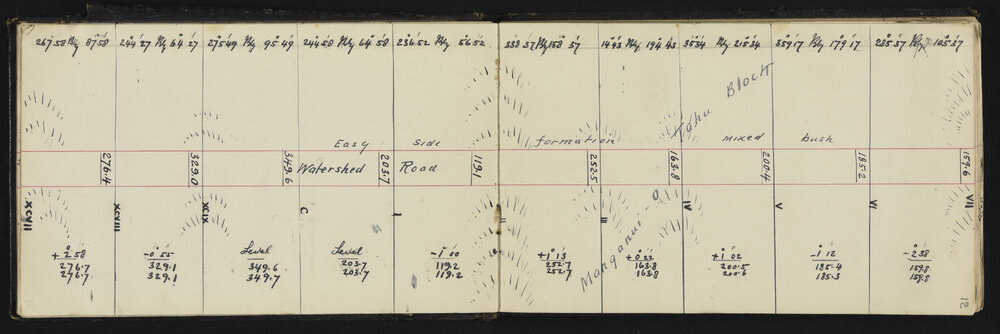 267°58' Bly 87°58' 244°27' Bly 64°27' 275°49' Bly 95°49' 244°58' Bly 64°58' 236°52' Bly 56°52' 338°37' Bly 158°37' 14°43' Bly 194°43' 35°34' Bly 215°34' 359°17' Bly 179°17' 285°37' Bly 105°37'
Manganui-o-Tahu Block
Easy side formation mixed bush
276.4 329.0 349.6 Watershed 203.7 Road 119.1 252.5 163.8 200.4 185.2 159.6
XCVII XCVIII XCIX C I II III IV V VI VII
+2°58' -0°55' Level Level -1°00' +1°13' +0°22' +1°02' -1°12' -2°38'
276.7 329.1 349.6 203.7 119.2 252.7 163.8 200.5 185.4 159.8
276.7 329.1 349.7 203.7 119.2 252.7 163.8 200.6 185.3 159.8
12